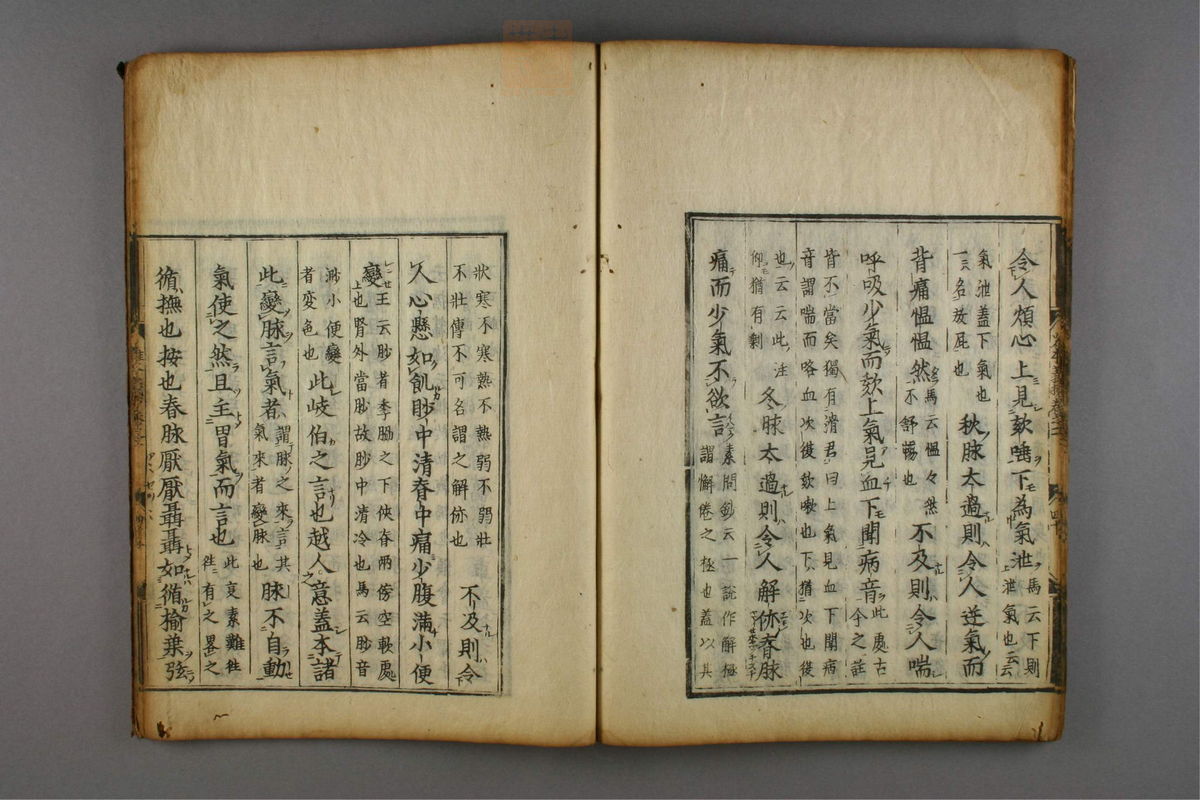 令人煩心上見欬唾下為氣泄馬云下則
上泄氣也云云
氣泄蓋下氣也
一名放屁也
秋脉太過則令人逆氣而
背痛慍慍然馬云慍々然
不舒暢也
不及則令人喘
呼吸少氣而欬上氣見血下聞病音此處古
今之註
皆不當矣獨有滑君曰上氣見血下聞病
音謂喘而咯血次復欬嗽也下猶次也復
也云云此注
仰猶有剩
冬脉太過則令人解㑊脊脉
痛而少氣不欲言素問鈔云一說作解極
謂懈倦之極也蓋以其
狀寒不寒熱不熱弱不弱壯
不壯傳不可名謂之解㑊也
不及則令
人心懸如飢䏚中清脊中痛少腹滿小便
變王云䏚者季脇之下俠脊兩傍空軟處
上也腎外當䏚故䏚中清冷也馬云䏚音
渺小便變
者变色也
此岐伯之言也越人之意蓋本諸
此變脉言氣者謂脉之來言其
氣來者變脉也
脉不自動
氣使之然且主胃氣而言也此变素難往
往有之畧之
循撫也按也春脉厭厭聶聶如循榆葉弦